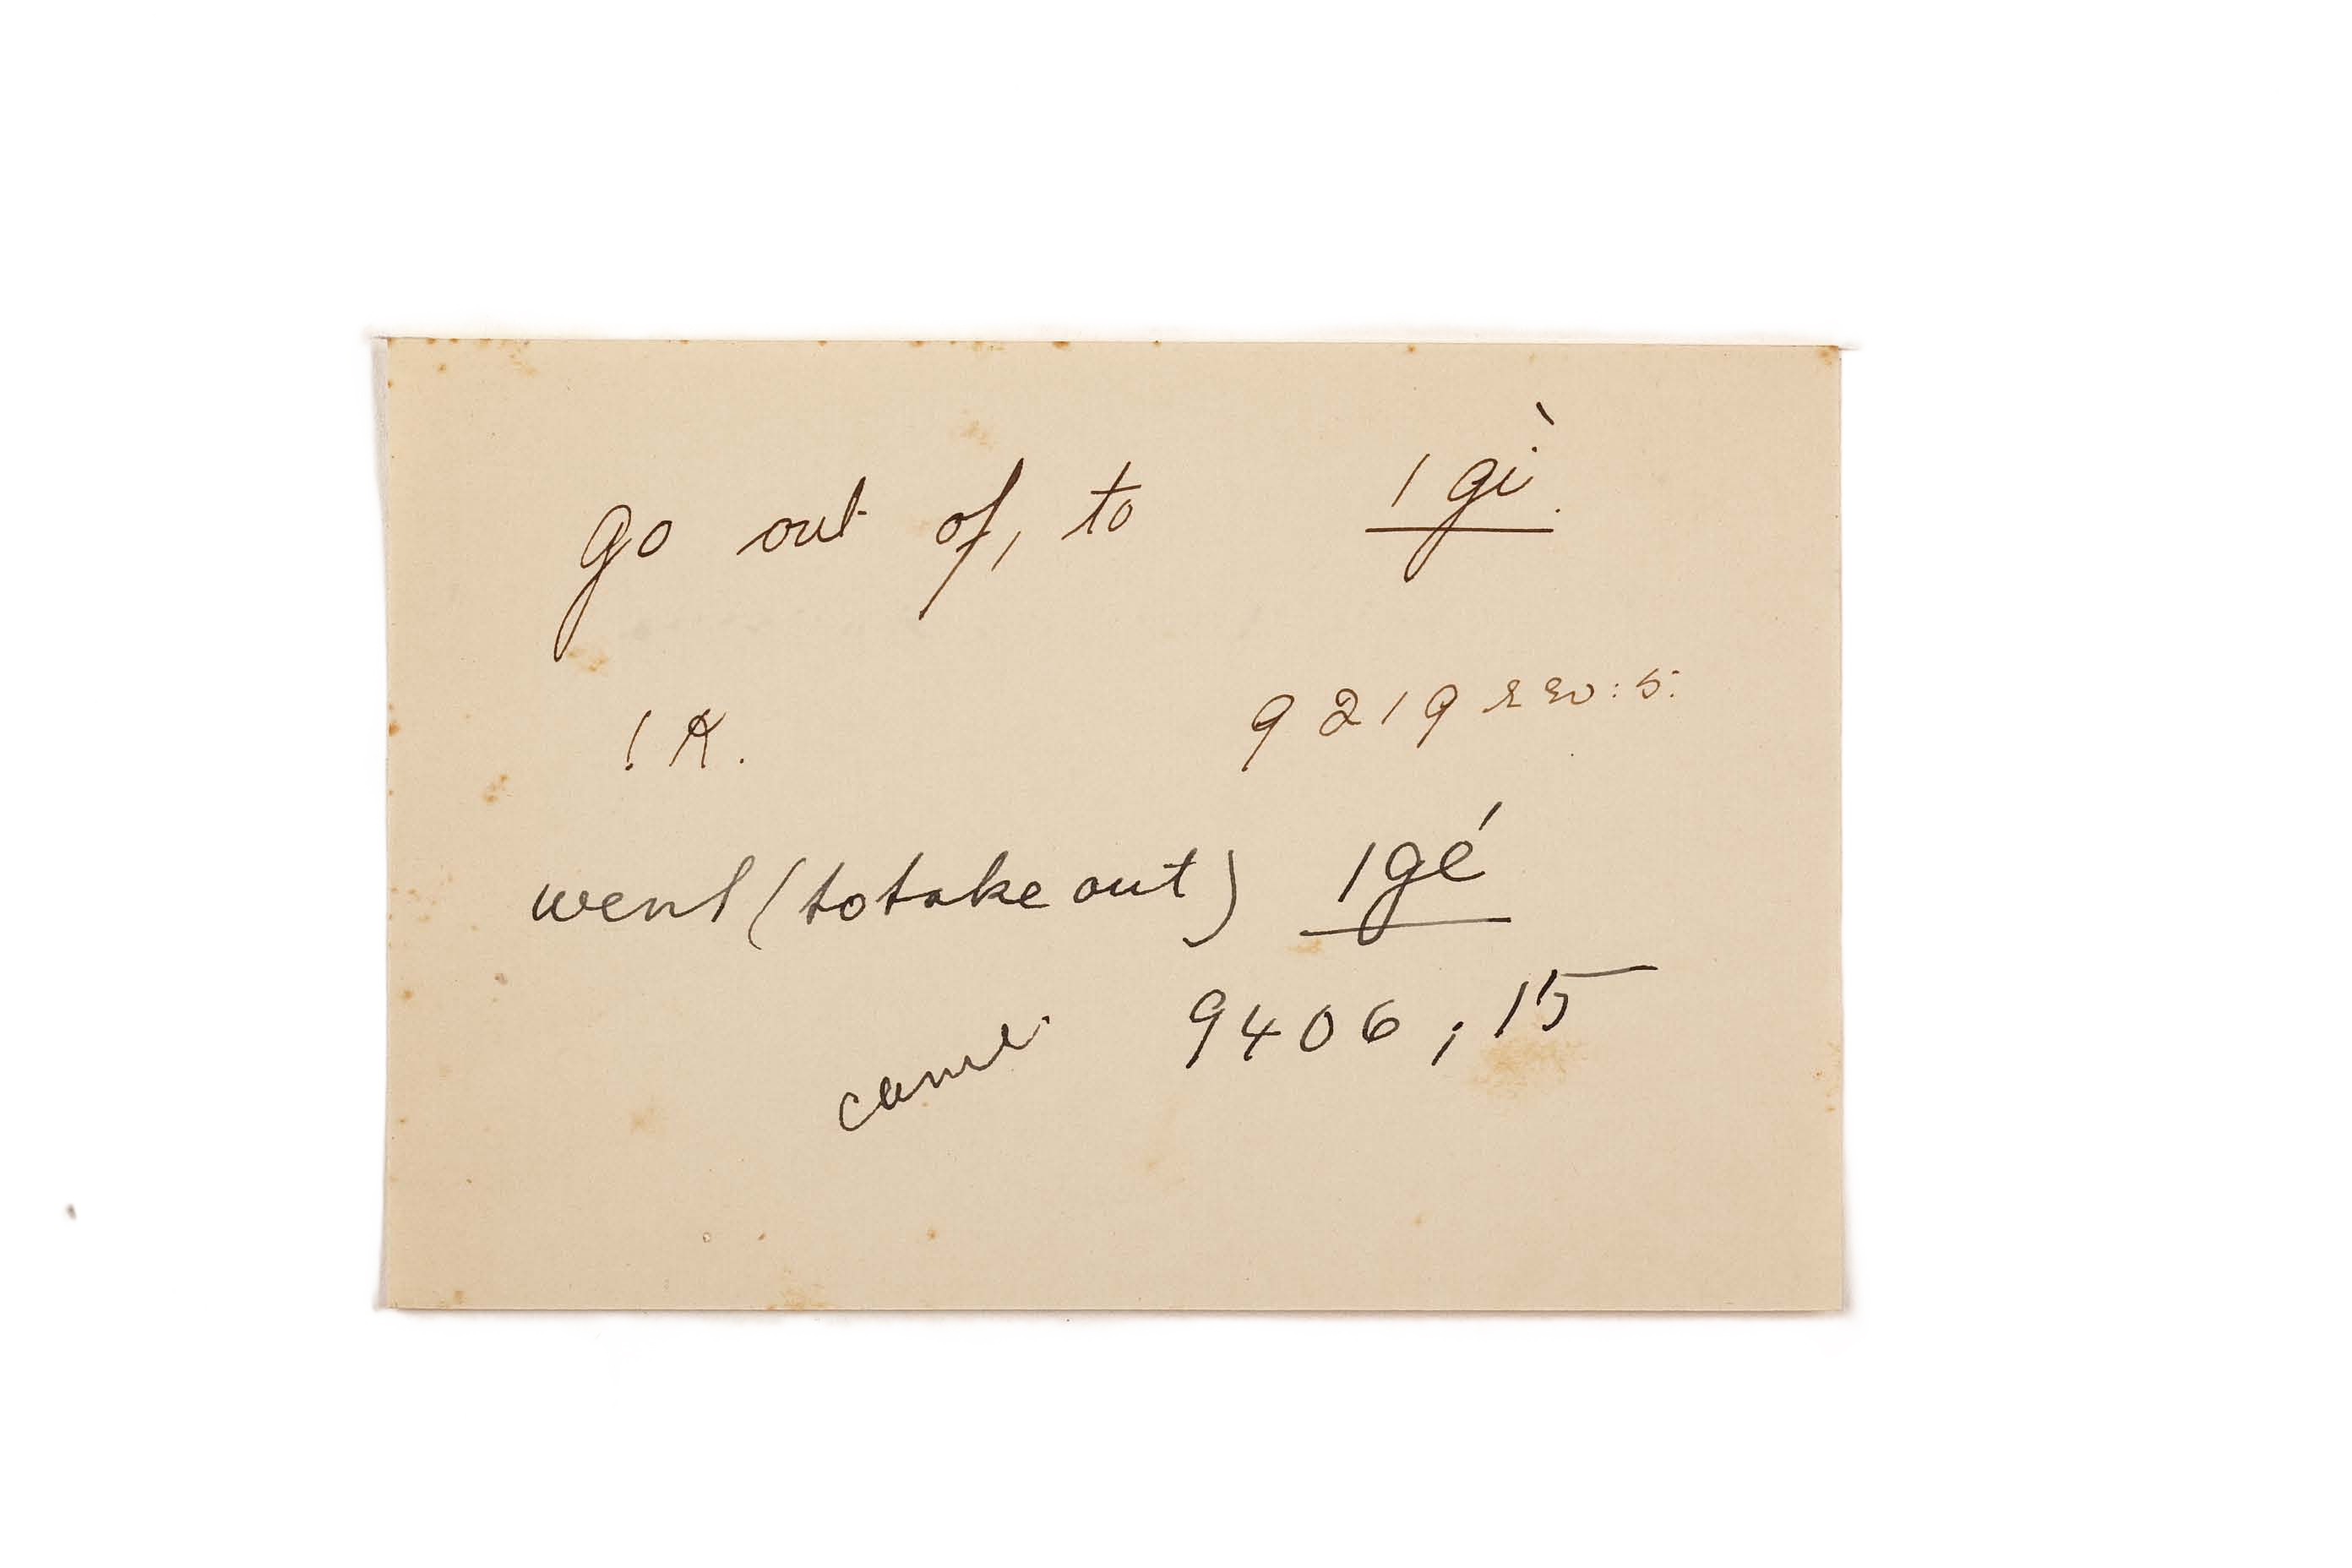 go out of, to |gì.
!K. 9219 rev:5:
went (to take out) |gé
came 9406; 15